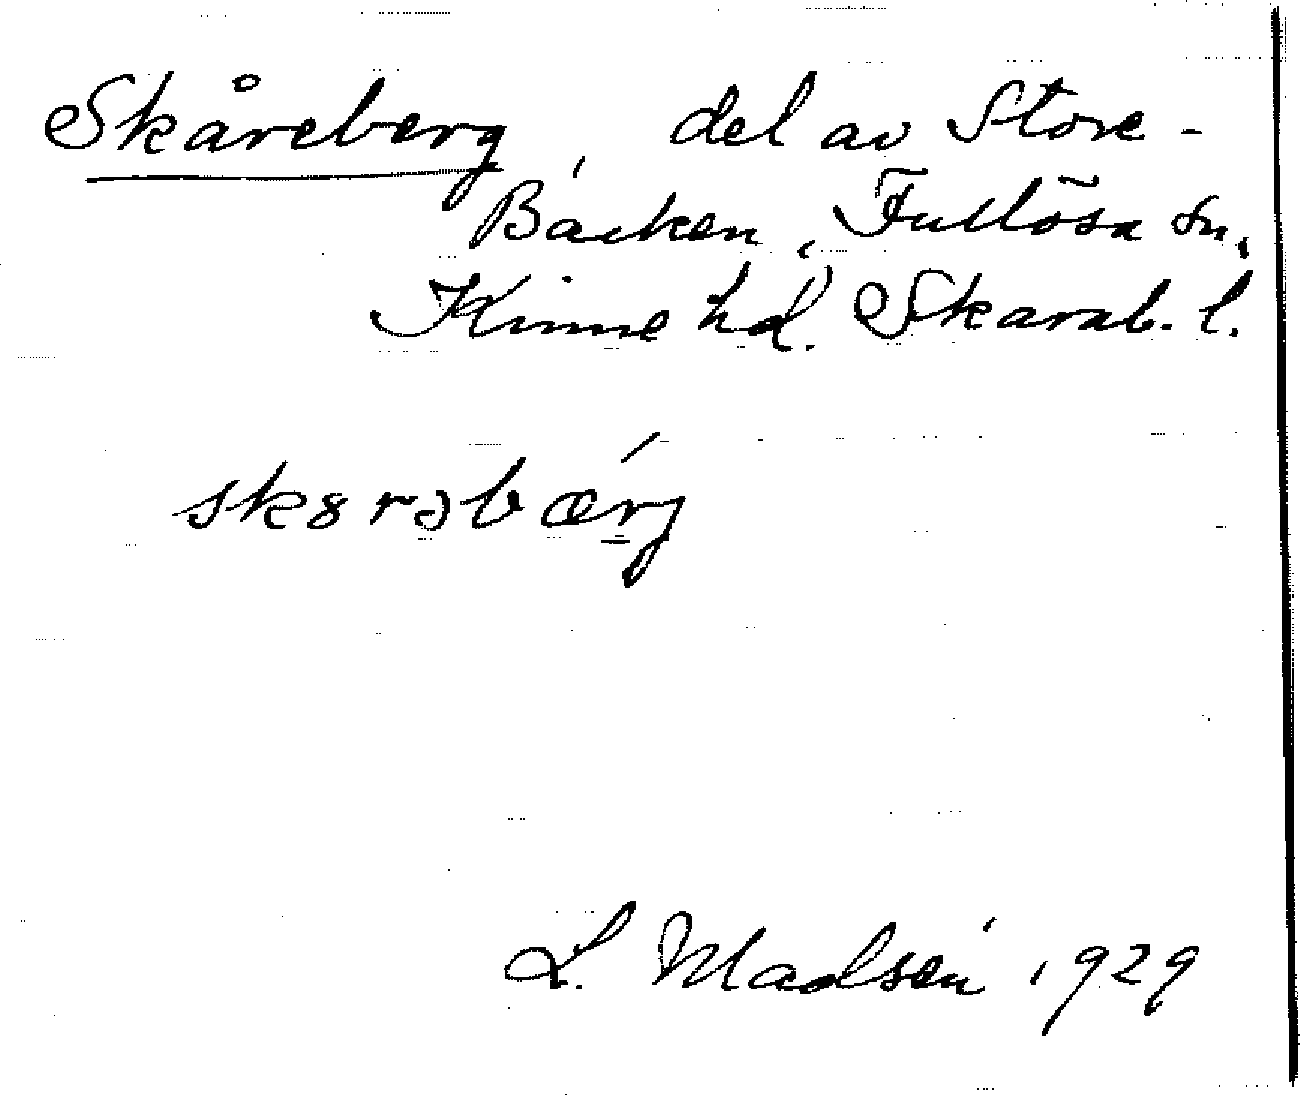 Skåreberg, del av Store-
Backen, Fullösa sn,
Kinne hd. Skarab. l.
sk8rəbærj
L. Madsén 1929